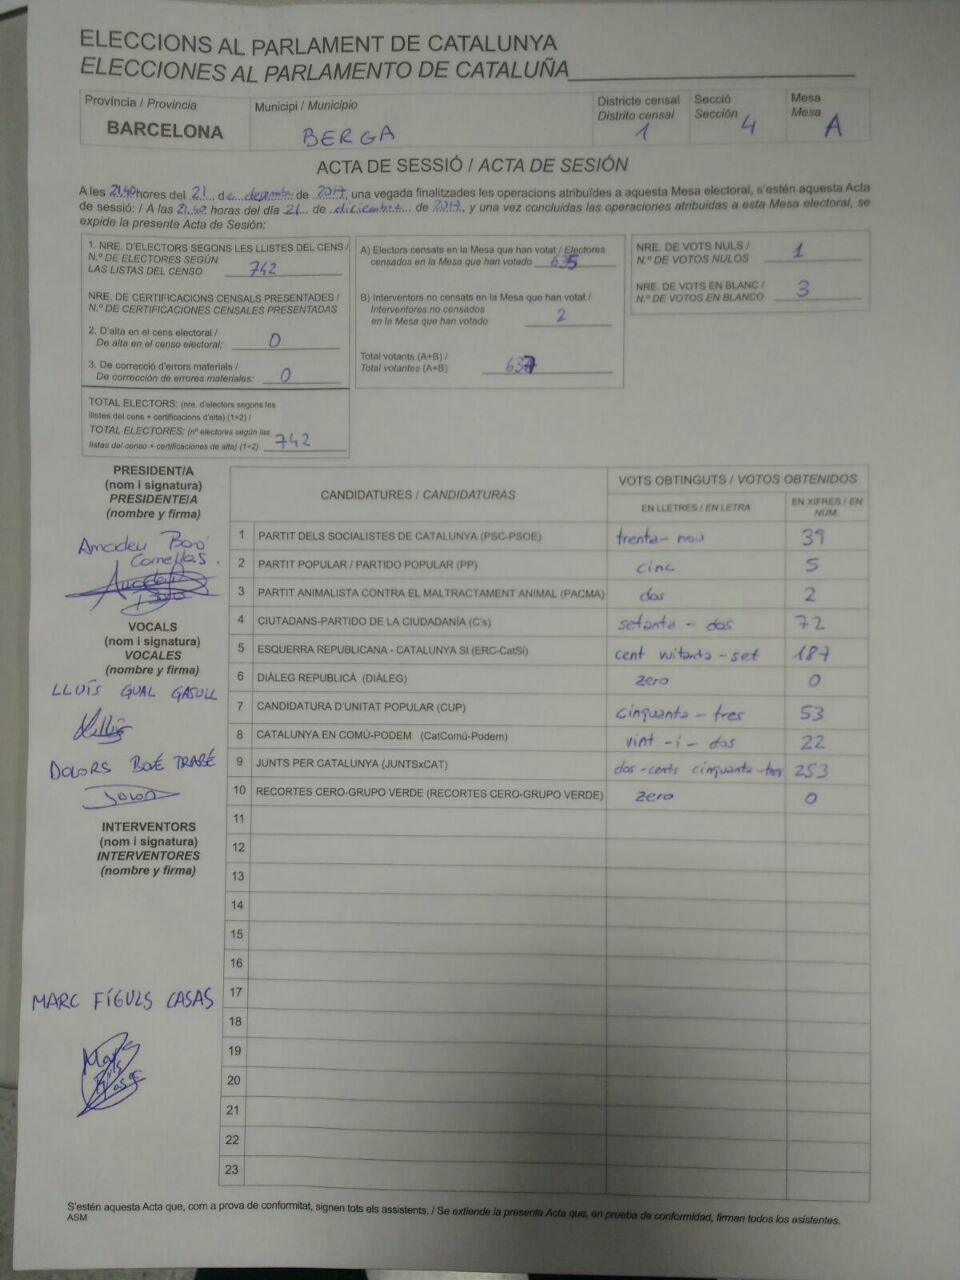 ELECCIONS AL PARLAMENT DE CATALUNYA
ELECCIONES AL PARLAMENTO DE CATALUÑA
Província / Provincia
BARCELONA
Municipi / Municipio
BERGA
Districte censal
Distrito censal
1
Secció
Sección
4
Mesa
Mesa
A
ACTA DE SESSIÓ / ACTA DE SESIÓN
A les 21.40 hores del 21 de desembre de 2017, una vegada finalitzades les operacions atribuïdes a aquesta Mesa electoral, s'estén aquesta Acta
de sessió: / A las 21.40 horas del día 21 de diciembre de 2017, y una vez concluidas las operaciones atribuidas a esta Mesa electoral, se
expide la presente Acta de Sesión:
1. NRE. D'ELECTORS SEGONS LES LLISTES DEL CENS /
N.º DE ELECTORES SEGÚN
LAS LISTAS DEL CENSO 742
NRE. DE CERTIFICACIONS CENSALS PRESENTADES /
N.º DE CERTIFICACIONES CENSALES PRESENTADAS
2. D'alta en el cens electoral /
De alta en el censo electoral: 0
3. De correcció d'errors materials /
De corrección de errores materiales: 0
TOTAL ELECTORS: (nre. d'electors segons les
llistes del cens + certificacions d'alta) (1+2) /
TOTAL ELECTORES: (nº electores según las
listas del censo + certificaciones de alta) (1+2) 742
A) Electors censats en la Mesa que han votat / Electores
censados en la Mesa que han votado 635
B) Interventors no censats en la Mesa que han votat /
Interventores no censados
en la Mesa que han votado 2
Total votants (A+B) /
Total votantes (A+B) 637
NRE. DE VOTS NULS /
N.º DE VOTOS NULOS 1
NRE. DE VOTS EN BLANC /
N.º DE VOTOS EN BLANCO 3
PRESIDENT/A
(nom i signatura)
PRESIDENTE/A
(nombre y firma)
Amadeu Boró
Comellas.
VOCALS
(nom i signatura)
VOCALES
(nombre y firma)
LLUÍS GUAL GASULL
DOLORS BOVÉ TRABÉ
INTERVENTORS
(nom i signatura)
INTERVENTORES
(nombre y firma)
MARC FÍGULS CASAS
CANDIDATURES / CANDIDATURAS
VOTS OBTINGUTS / VOTOS OBTENIDOS
EN LLETRES / EN LETRA
EN XIFRES / EN
NÚM.
1 PARTIT DELS SOCIALISTES DE CATALUNYA (PSC-PSOE) trenta-nou 39
2 PARTIT POPULAR / PARTIDO POPULAR (PP) cinc 5
3 PARTIT ANIMALISTA CONTRA EL MALTRACTAMENT ANIMAL (PACMA) dos 2
4 CIUTADANS-PARTIDO DE LA CIUDADANÍA (C's) setanta-dos 72
5 ESQUERRA REPUBLICANA - CATALUNYA SÍ (ERC-CatSí) cent vuitanta-set 187
6 DIÀLEG REPUBLICÀ (DIÀLEG) zero 0
7 CANDIDATURA D'UNITAT POPULAR (CUP) cinquanta-tres 53
8 CATALUNYA EN COMÚ-PODEM (CatComú-Podem) vint-i-dos 22
9 JUNTS PER CATALUNYA (JUNTSxCAT) dos-cents cinquanta-tres 253
10 RECORTES CERO-GRUPO VERDE (RECORTES CERO-GRUPO VERDE) zero 0
11
12
13
14
15
16
17
18
19
20
21
22
23
S'estén aquesta Acta que, com a prova de conformitat, signen tots els assistents. / Se extiende la presente Acta que, en prueba de conformidad, firman todos los asistentes.
ASM